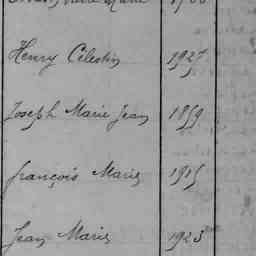 Henry Célestin 1927
Joseph Marie Jean 1859
François Marie 1915
Jean Marie 1923